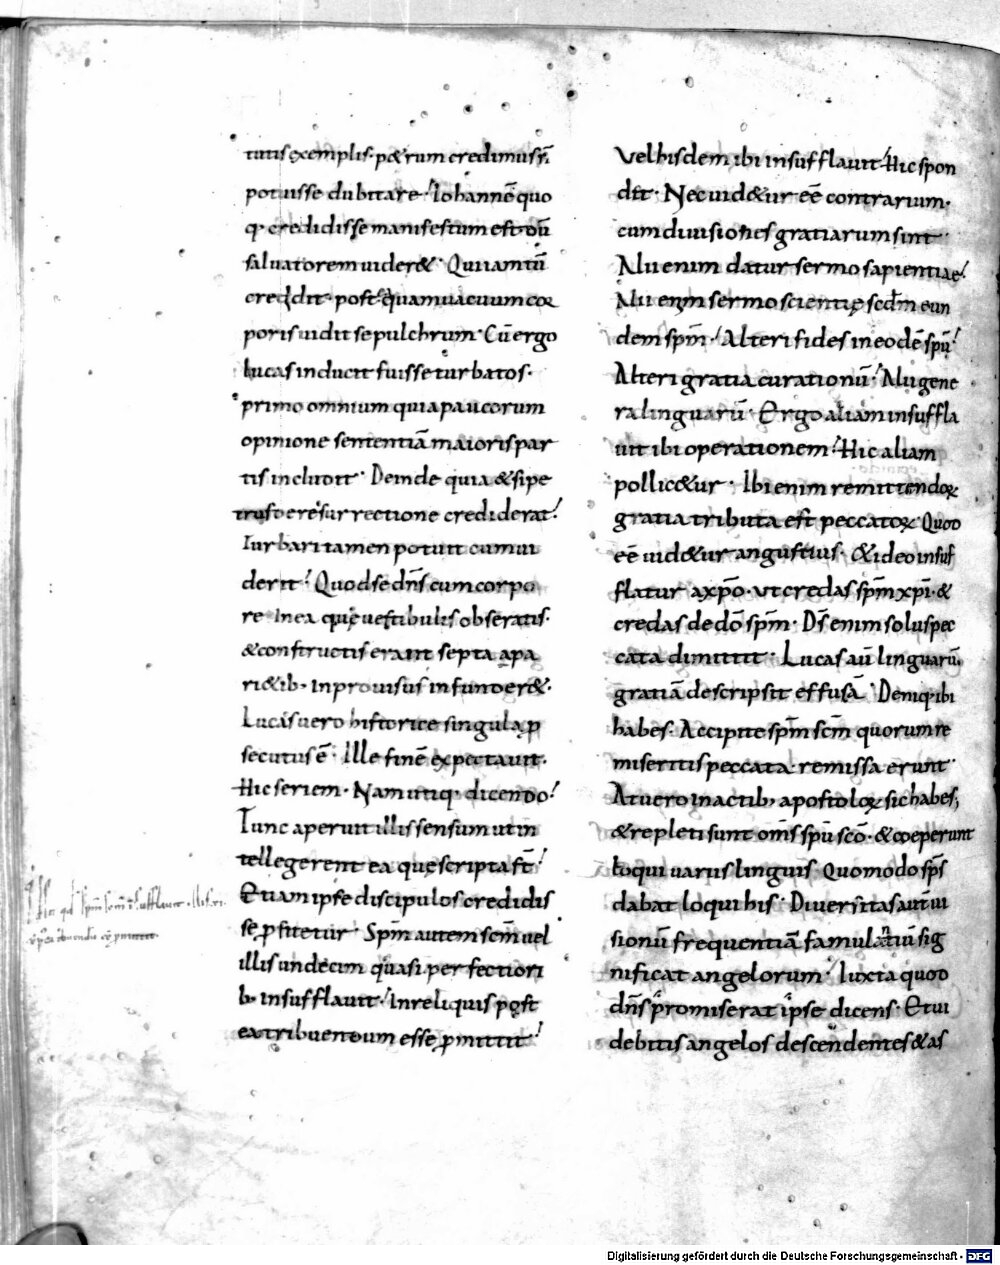 tutis exemplis· petrum credimus ñ
potuisse dubitare· Iohannē quo
q· credidisse manifestum est· dū
saluatorem uideret· Qui iam tū
credidit· postquam uacuum cor
poris uidit sepulchrum· Cū ergo
lucas inducit fuisse turbatos·
primo omnium quia paucorum
opinione sententiā maioris par
tis inclusit· Deinde quia etsi pe
trus de resurrectione crediderat·
turbari tamen potuit cum ui
derit· Quod se dn̄s cum corpo
re· In ea que uestibulis obseratis·
& constructis erant septa apa
rietib· inprouisus infunderet·
Lucas uero historice singula p
secutus ē· Ille finē expectauit·
Hic seriem· Nam utiq· dicendo·
Tunc aperuit illis sensum ut in
tellegerent ea que scripta st̄·
Etiam ipse discipulos credidis
se p̱fitetur· Spm̄ autem scm̄ uel
illis undecim quasi perfectiori
b· insufflauit· In reliquis post
ea tribuendum esse p̱mittit·
Vel hisdem ibi insufflauit· Hic spon
dit· Nec uidetur eē contrarium·
cum diuisiones gratiarum sint
Alii enim datur sermo sapientiae·
Alii enim sermo scientię scdm̄ eun
dem spm̄· Alteri fides in eodē spū·
Alteri gratia curationū· Alii gene
ra linguarū· Ergo aliam insuffla
uit ibi operationem· Hic aliam
pollicetur· Ibi enim remittendor
gratia tributa est peccator· Quod
eē uidetur angustius· & ideo insuf
flatur a xpō· ut credas spm̄ xpi· &
credas de dō spm̄· Ds̄ enim solus pec
cata dimittit· Lucas aū linguarū
gratiā descripsit effusā· Deniq· ibi
habes· Accipite spm̄ scm̄ quorum re
miseritis peccata· remissa erunt
At uero in actib; apostolor sic habes;
& repleti sunt oms̄ spū scō· & coeperunt
loqui uariis linguis· Quomodo sps̄
dabat loqui his· Diuersitas aut ui
sionū frequentiā famulatiū sig
nificat angelorum· Iuxta quod
dn̄s promiserat ipse dicens· Et ui
debitis angelos descendentes & as
Digitalisierung gefördert durch die Deutsche Forschungsgemeinschaft - DFG